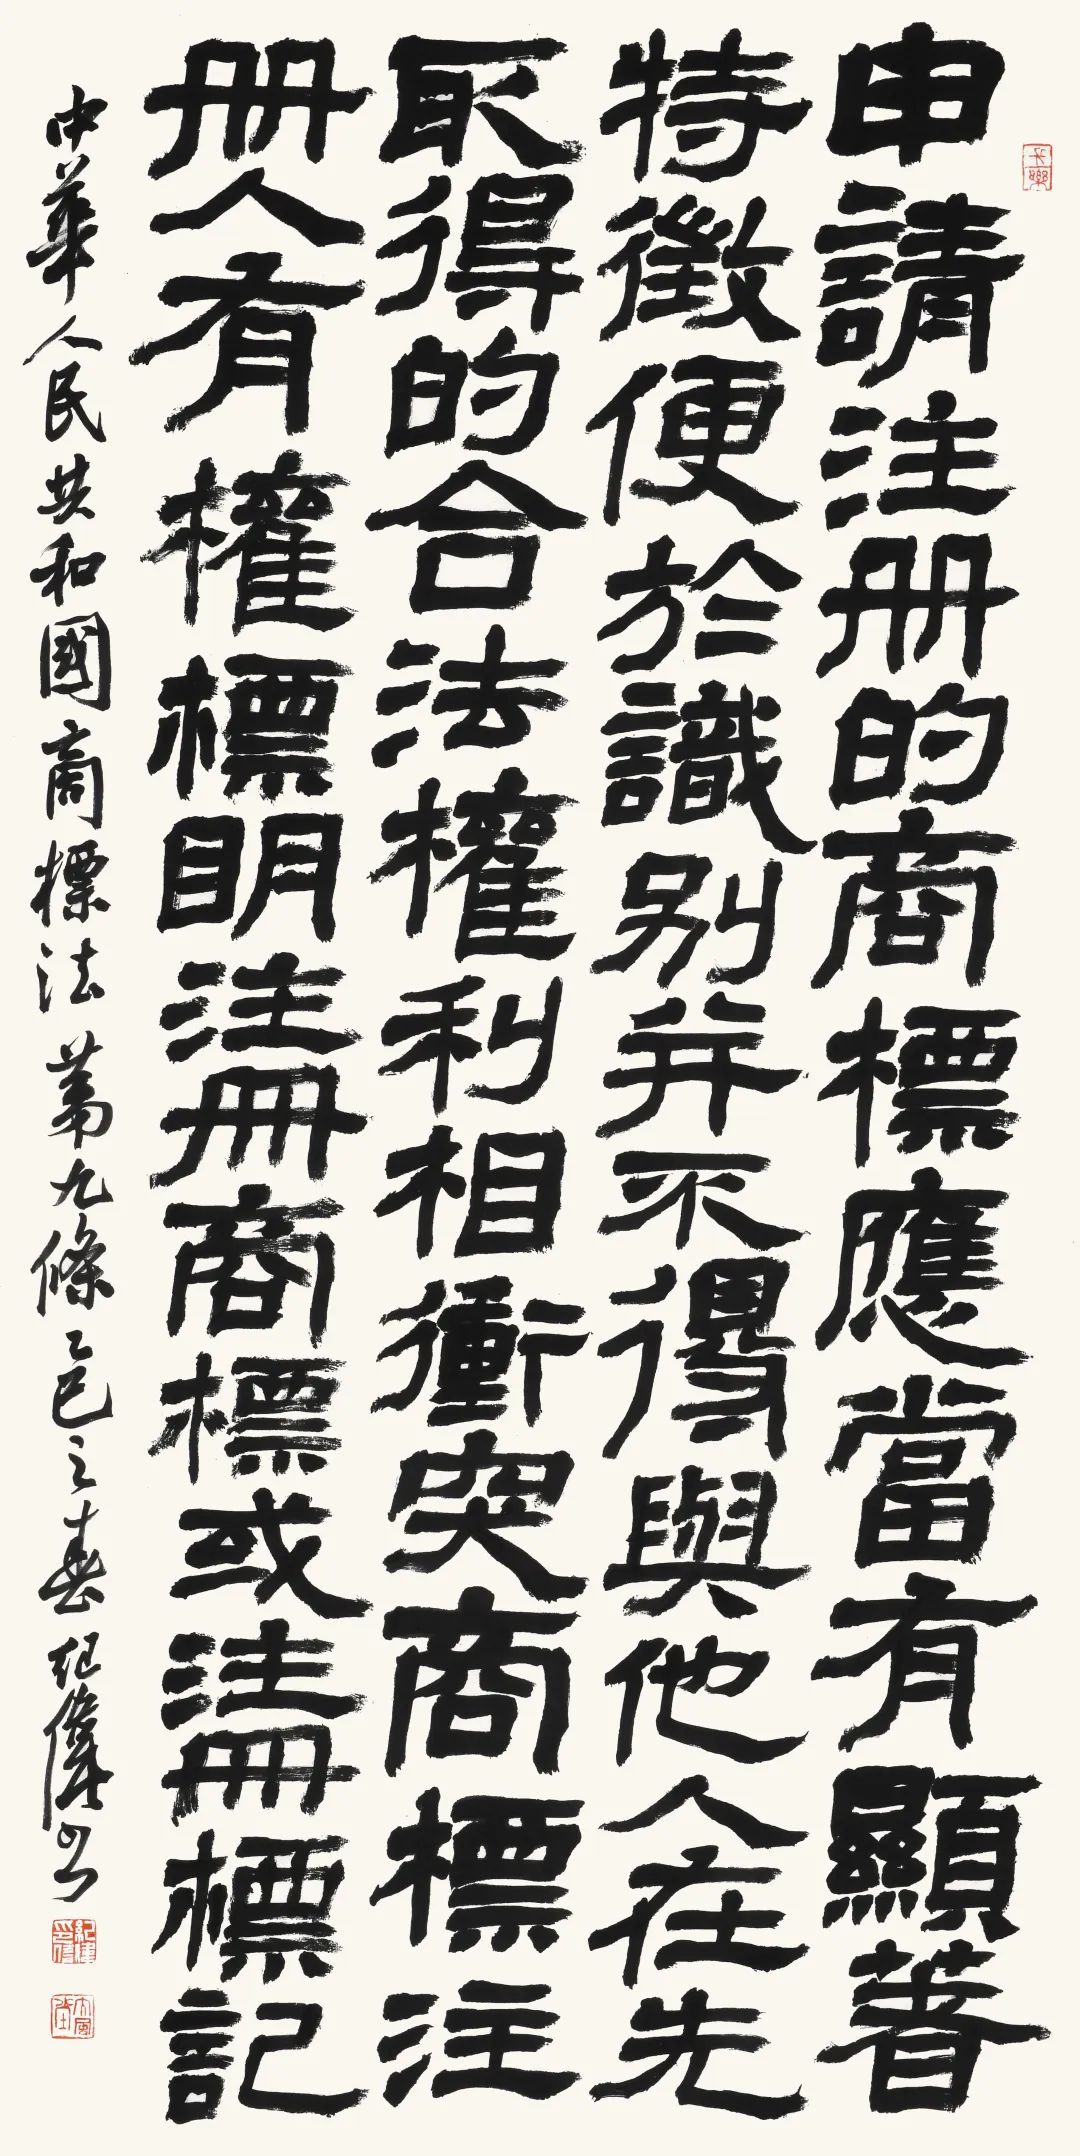 申請注册的商標應當有顯著
特徵便於識别并不得與他人在先
取得的合法權利相衝突商標注
册人有權標明注册商標或注册標記
中華人民共和國商標法第九條乙巳之春纪偉书
长樂